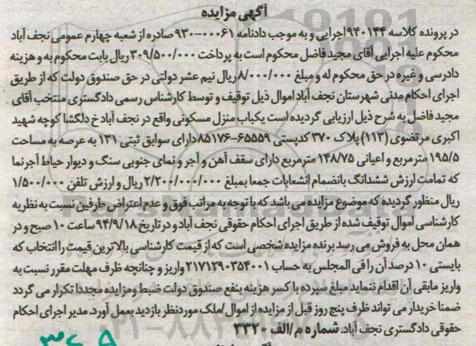 آگهی مزایده
در پرونده کلاسه ۹۴۰۱۴۴ اجرایی و به موجب دادنامه ۹۳۰۰۰۰۶۱ صادره از شعبه چهارم عمومی نجف آباد
محکوم علیه اجرایی آقای مجید فاضل محکوم است به پرداخت ۳۰۹/۵۰۰/۰۰۰ ریال بابت محکوم به و هزینه
دادرسی و غیره در حق محکوم له و مبلغ ۸/۰۰۰/۰۰۰ ریال نیم عشر دولتی در حق صندوق دولت که از طریق
اجرای احکام مدنی شهرستان نجف آباد اموال ذیل توقیف و توسط کارشناس رسمی دادگستری منتخب آقای
مجید فاضل به شرح ذیل ارزیابی گردیده است یکباب منزل مسکونی واقع در نجف آباد خ دلگشا کوچه شهید
اکبری مرتضوی (۱۱۲) پلاک ۳۷۰ کدپستی ۶۵۵۵۹-۸۵۱۷۶ دارای سوابق ثبتی ۱۳۱ به عرصه به مساحت
۱۹۵/۵ مترمربع و اعیانی ۱۴۸/۷۵ مترمربع دارای سقف آهن و آجر و نمای جنوبی سنگ و دیوار حیاط آجرنما
که تمامت ارزش ششدانگ بانضمام انشعابات جمعا بمبلغ ۲/۲۰۰/۰۰۰/۰۰۰ ریال و ارزش تلفن ۱/۵۰۰/۰۰۰
ریال منظور گردیده که موضوع مزایده می باشد که با توجه به مراتب فوق و عدم اعتراض طرفین نسبت به نظریه
کارشناسی اموال توقیف شده از طریق اجرای احکام حقوقی نجف آباد و در تاریخ ۹۴/۹/۱۸ ساعت ۱۰ صبح و در
همان محل به فروش می رسد برنده مزایده شخصی است که از قیمت کارشناسی بالاترین قیمت را انتخاب که
بایستی ۱۰ درصد آن را فی المجلس به حساب ۲۱۷۱۲۹۰۳۵۴۰۰۱ واریز و چنانچه ظرف مهلت مقرر نسبت به
واریز مابقی آن اقدام ننماید مبلغ سپرده با کسر هزینه بنفع صندوق دولت ضبط و مزایده مجددا تکرار می گردد
ضمنا خریدار می تواند ظرف پنج روز قبل از مزایده از اموال/ملک موردنظر بازدید بعمل آورد. مدیر اجرای احکام
حقوقی دادگستری نجف آباد. شماره م/الف ۳۳۲۰